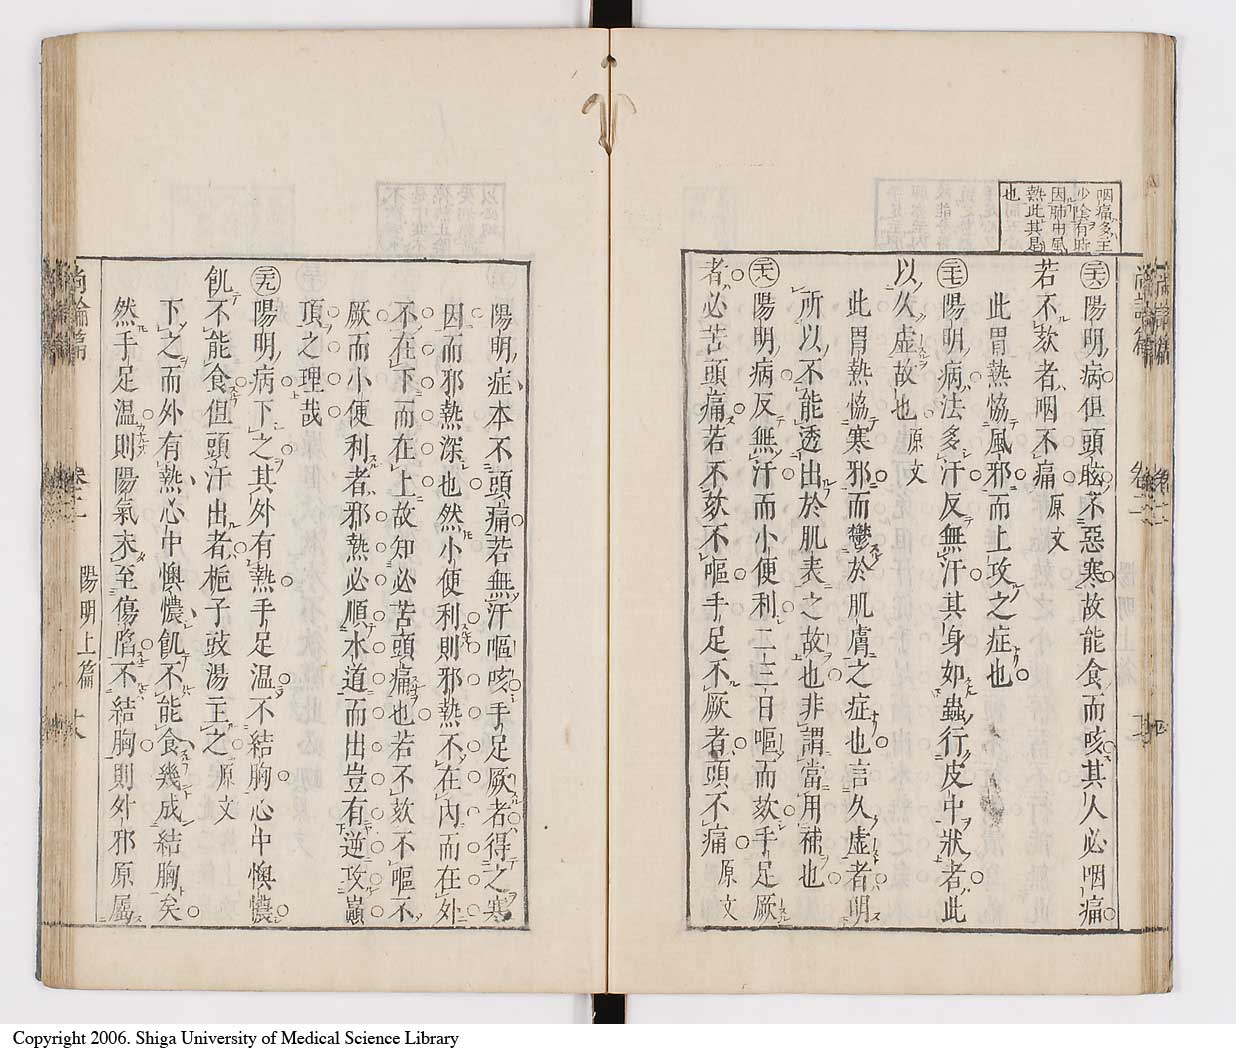 咽痛多主
少陰有時
因肺中風
熱此其是
也
㊁陽明病但頭眩不惡寒故能食而咳其人必咽痛
若不欬者咽不痛 原文
此胃熱恊風邪而上攻之症也
陽明病法多汗反無汗其身如蟲行皮中狀者此
以久虛故也 原文
此胃熱恊寒邪而鬱於肌膚之症也言久虛者明
所以不能透出於肌表之故也非謂當用補也
陽明病反無汗而小便利二三日嘔而欬手足厥
者必苦頭痛若不欬不嘔手足不厥者頭不痛 原文
陽明症本不頭痛若無汗嘔咳手足厥者得之寒
因而邪熱深也然小便利則邪熱不在內而在外
不在下而在上故知必苦頭痛也若不欬不嘔不
厥而小便利者邪熱必順水道而出豈有逆攻巔
頂之理哉
陽明病下之其外有熱手足溫不結胸心中懊憹
飢不能食但頭汗出者梔子豉湯主之 原文
下之而外有熱心中懊憹飢不能食幾成結胸矣
然手足溫則陽氣未至傷陷不結胸則外邪原屬
尚論篇 卷二 陽明上篇
Copyright 2006. Shiga University of Medical Science Library